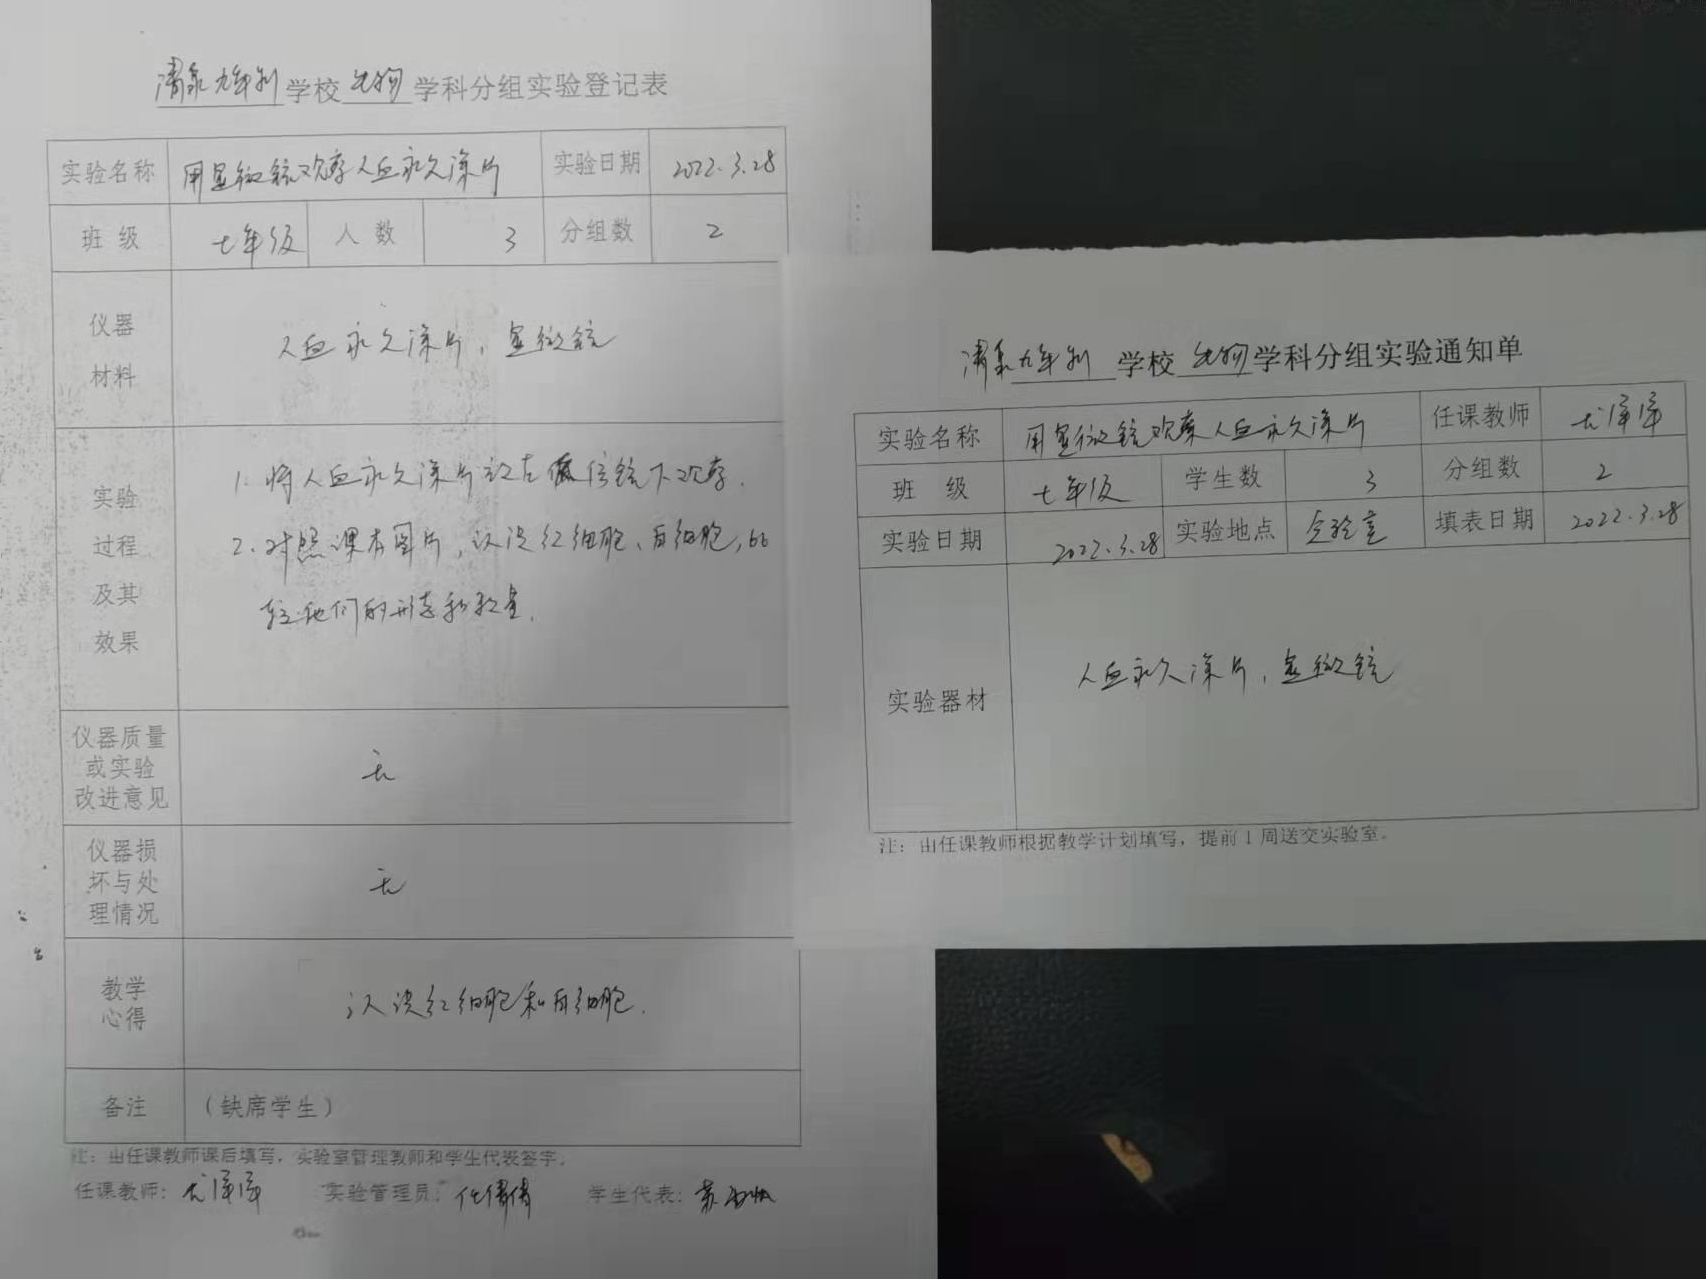 清泉九年制学校生物学科分组实验登记表
实验名称 用显微镜观察人血永久涂片 实验日期 2022.3.28
班级 七年级 人数 3 分组数 2
仪器
材料
人血永久涂片，显微镜
实验
过程
及其
效果
1.将人血永久涂片放在低倍镜下观察.
2.对照课本图片，认识红细胞、白细胞，比
较他们的形态和数量.
仪器质量
或实验
改进意见
无
仪器损
坏与处
理情况
无
教学
心得
认识红细胞和白细胞.
备注 （缺席学生）
注：由任课教师课后填写，实验室管理教师和学生代表签字。
任课教师： 实验管理员： 学生代表：
清泉九年制学校生物学科分组实验通知单
实验名称 用显微镜观察人血永久涂片 任课教师
班级 七年级 学生数 3 分组数 2
实验日期 2022.3.28 实验地点 实验室 填表日期 2022.3.28
实验器材
人血永久涂片，显微镜
注：由任课教师根据教学计划填写，提前1周送交实验室。